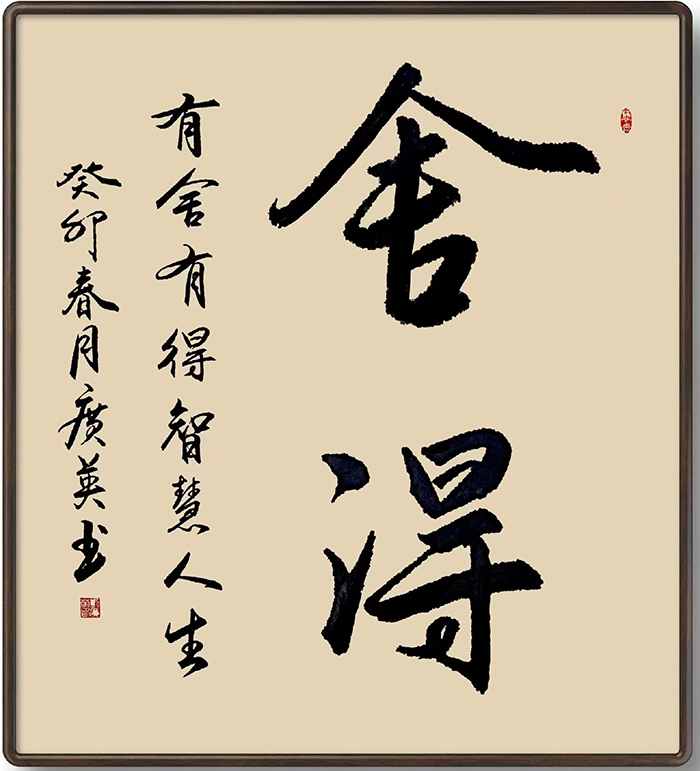 舍得
有舍有得智慧人生
癸卯春月廣英书